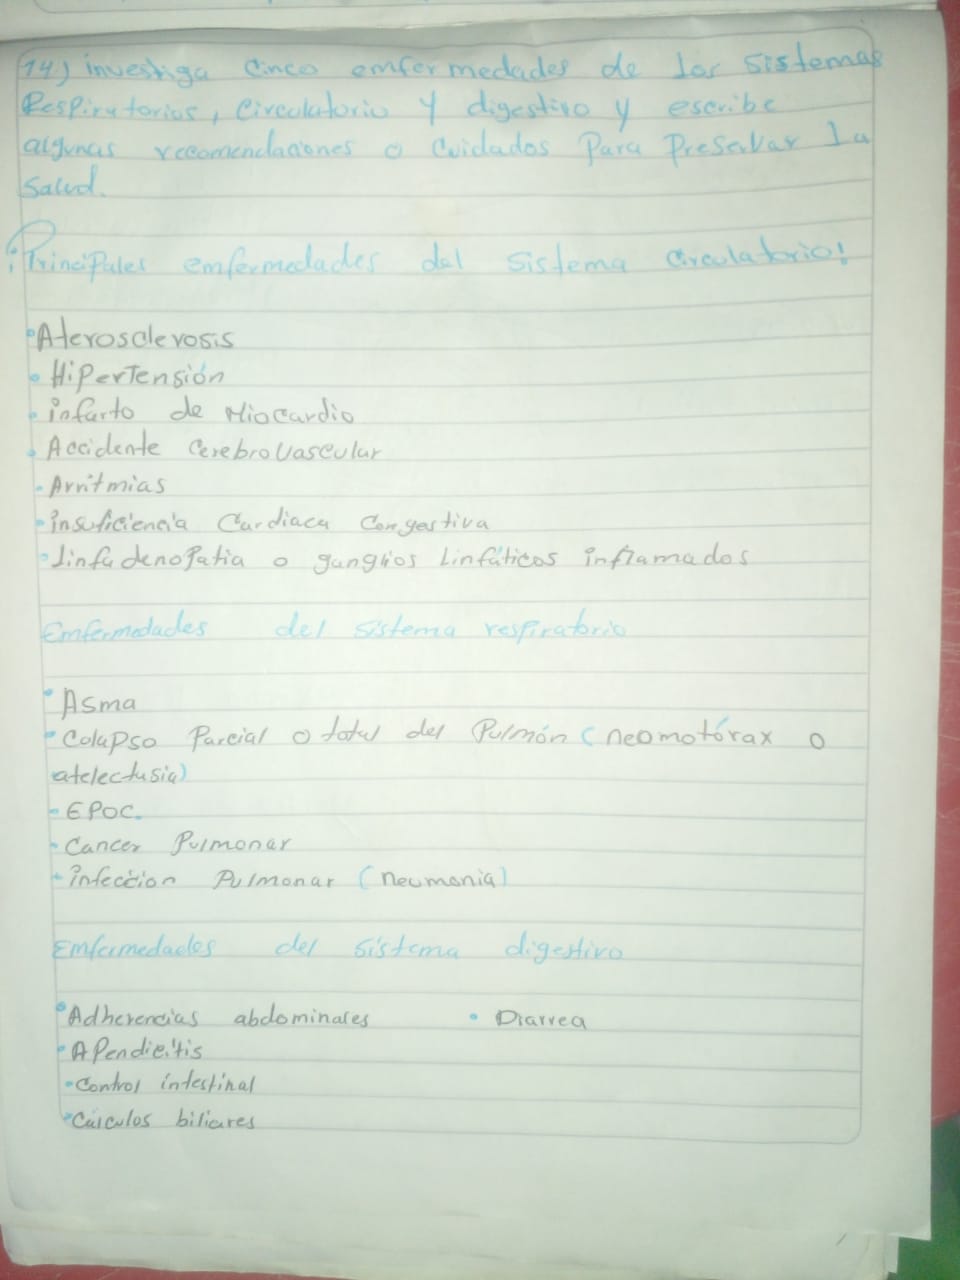 14) investiga Cinco enfermedades de los sistemas
Respiratorios, Circulatorio y digestivo y escribe
algunas recomendaciones o Cuidados Para Preservar la
Salud.
¡Principales enfermedades del Sistema Circulatorio!
• Aterosclerosis
• Hipertensión
• infarto de Miocardio
• Accidente Cerebrovascular
• Arritmias
• insuficiencia Cardiaca Congestiva
• Linfadenopatia o ganglios Linfáticos inflamados
Enfermedades del sistema respiratorio
• Asma
• Colapso Parcial o total del Pulmón (neomotórax o
atelectasia)
• EPOC.
• Cancer Pulmonar
• infeccion Pulmonar (neumonia)
Enfermedades del sistema digestivo
• Adherencias abdominales • Diarrea
• Apendicitis
• Control intestinal
• Cálculos biliares